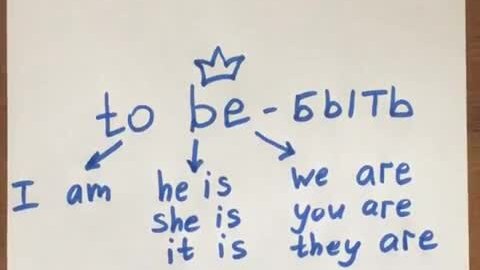 to be - быть
I am he is we are
she is you are
it is they are